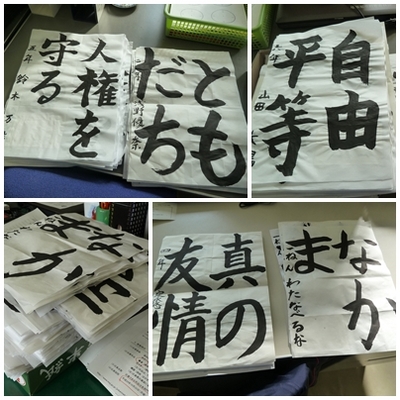 人権を
守る
五年 鈴木
とも
だち
自由
平等
山田
なか
ま
真の
友情
なか
ま
ねんわたなべるな